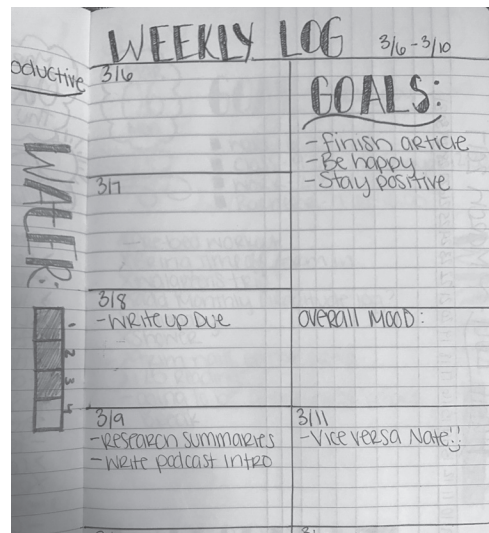 WEEKLY LOG 3/6-3/10
oductive
WATER:
1
2
3
4
3/6
3/7
3/8
-Write up Due
3/9
-Research Summaries
-Write podcast Intro
GOALS:
-finish article
-Be happy
-Stay positive
overall Mood:
3/11
-Vice versa Nate :)